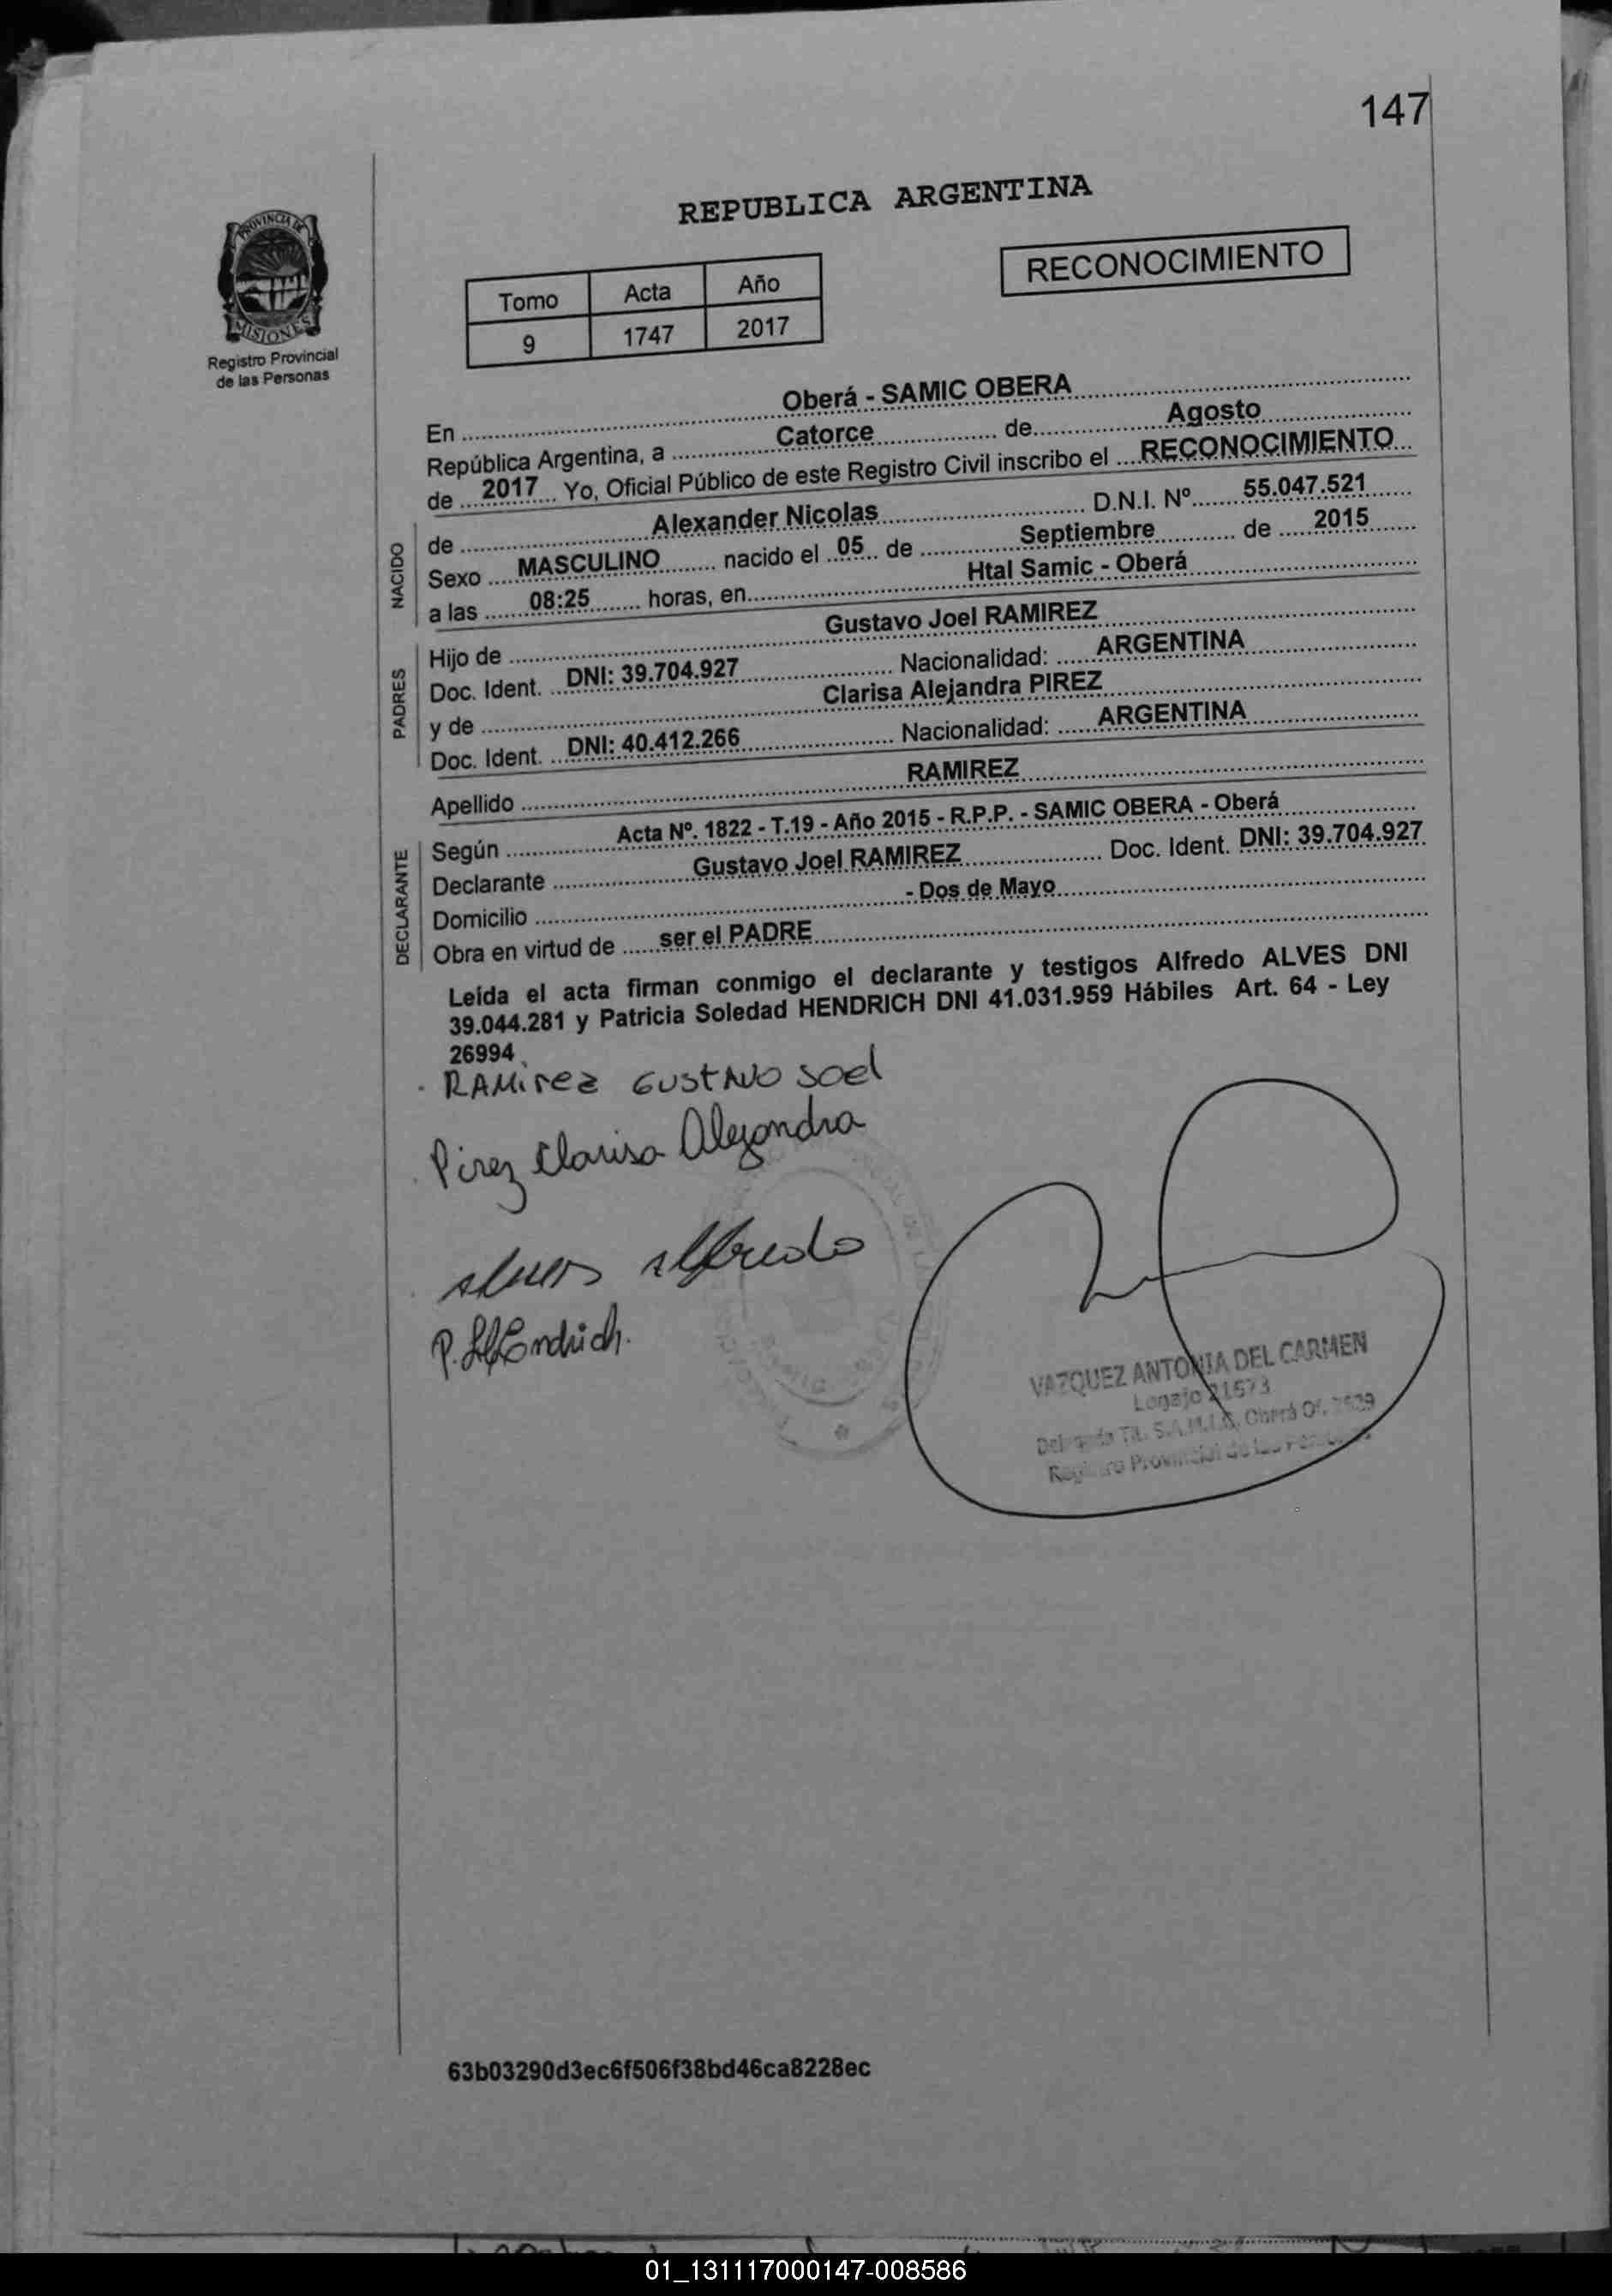 147
REPUBLICA ARGENTINA
PROVINCIA DE
MISIONES
Registro Provincial
de las Personas
RECONOCIMIENTO
Tomo Acta Año
9 1747 2017
En Oberá - SAMIC OBERA
República Argentina, a Catorce de Agosto
de 2017 Yo, Oficial Público de este Registro Civil inscribo el RECONOCIMIENTO
NACIDO
de Alexander Nicolas D.N.I. Nº 55.047.521
Sexo MASCULINO nacido el 05 de Septiembre de 2015
a las 08:25 horas, en Htal Samic - Oberá
PADRES
Hijo de Gustavo Joel RAMIREZ
Doc. Ident. DNI: 39.704.927 Nacionalidad: ARGENTINA
y de Clarisa Alejandra PIREZ
Doc. Ident. DNI: 40.412.266 Nacionalidad: ARGENTINA
Apellido RAMIREZ
DECLARANTE
Según Acta Nº. 1822 - T.19 - Año 2015 - R.P.P. - SAMIC OBERA - Oberá
Declarante Gustavo Joel RAMIREZ Doc. Ident. DNI: 39.704.927
Domicilio - Dos de Mayo
Obra en virtud de ser el PADRE
Leída el acta firman conmigo el declarante y testigos Alfredo ALVES DNI
39.044.281 y Patricia Soledad HENDRICH DNI 41.031.959 Hábiles Art. 64 - Ley
26994
RAMirez GUSTAVO Joel
Pirez Clarisa Alejandra
Alves Alfredo
P. Hendrich.
VAZQUEZ ANTONIA DEL CARMEN
Legajo 21573
S.A.M.I.C. Oberá Of.
Registro Provincial de las
63b03290d3ec6f506f38bd46ca8228ec
01_131117000147-008586